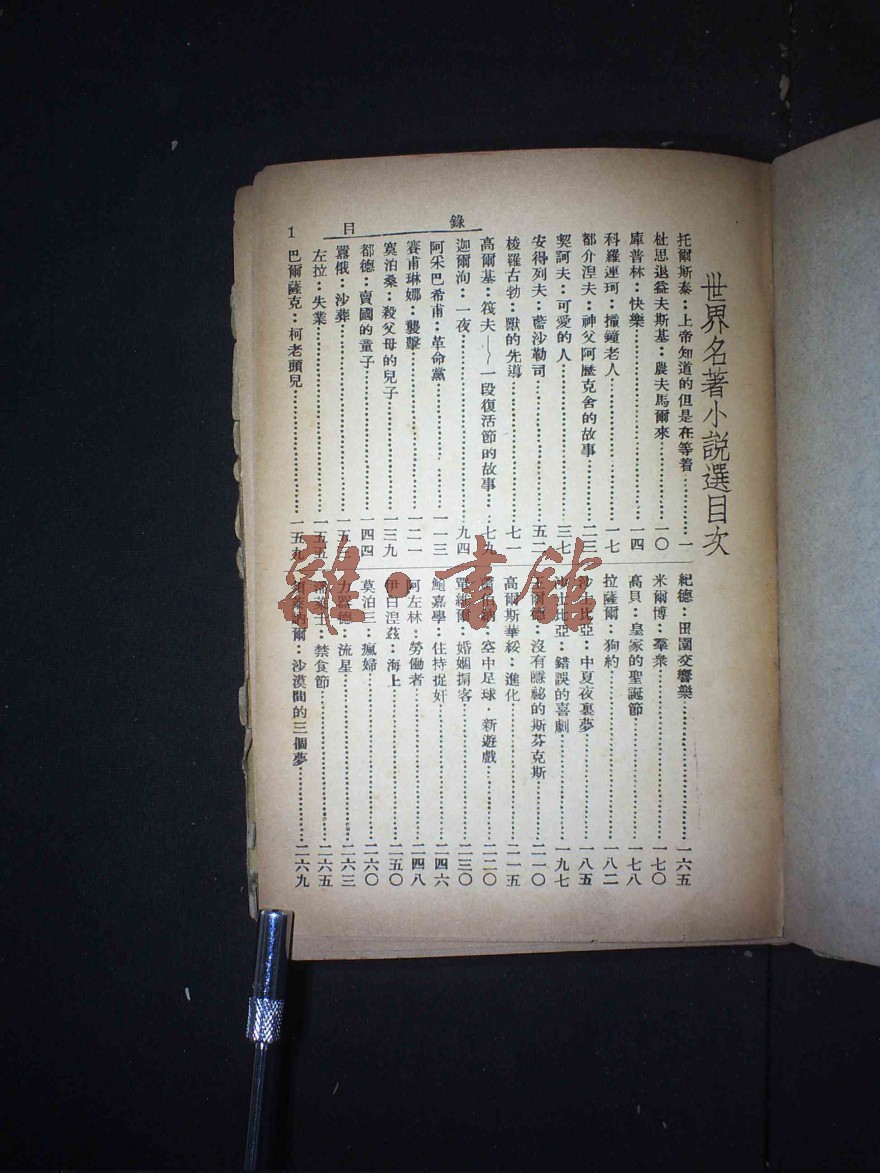 世界名著小說選目次
目錄
1
托爾斯泰：上帝知道的但是在等着………一
杜思退益夫斯基：農夫馬爾來………一〇
庫普林：快樂………一四
科羅連珂：撞鐘老人………一七
都介涅夫：神父阿歷克舍的故事………二三
契訶夫：可愛的人………三七
安得列夫：藍沙勒司………五二
梭羅古勃：獸的先導………七一
高爾基：筏夫——一段復活節的故事………七九
迦爾洵：一夜………九四
阿采巴希甫：革命黨………一一三
賽甫琳娜：襲擊………一二一
莫泊桑：殺父母的兒子………一三九
都德：賣國的童子………一四四
囂俄：沙葬………一五三
左拉：失業………一五五
巴爾薩克：柯老頭兒………一五九
紀德：田園交響樂………一六五
米爾博：羣衆………一七〇
高貝：皇家的聖誕節………一七八
拉薩爾：狗約………一八二
沙士比亞：中夏夜裏夢………一八五
沙士比亞：錯誤的喜劇………一九七
王爾德：沒有隱祕的斯芬克斯………二一〇
高爾斯華綏：進化………二一五
：空中足球·新遊戲………二二〇
單維爾：婚姻掮客………二三〇
鮑嘉學：住持捉奸………二四六
阿左林：勞働者………二四八
伊白涅茲：海上………二五〇
莫泊三：瘋婦………二六〇
力器德：流星………二六三
：禁食節………二六五
須萊納爾：沙漠間的三個夢………二六九
雜·書館